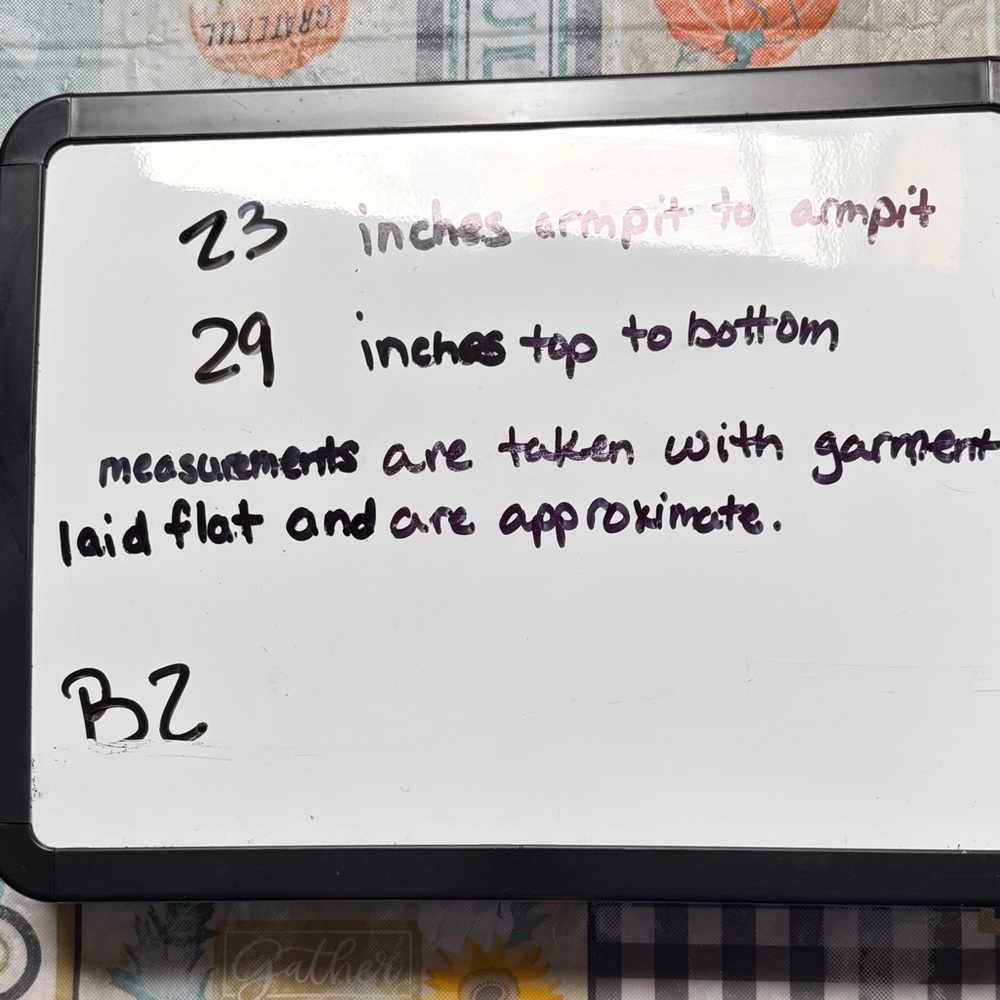 GRATEFUL
23 inches armpit to armpit
29 inches top to bottom
measurements are taken with garment
laid flat and are approximate.
B2
Gather